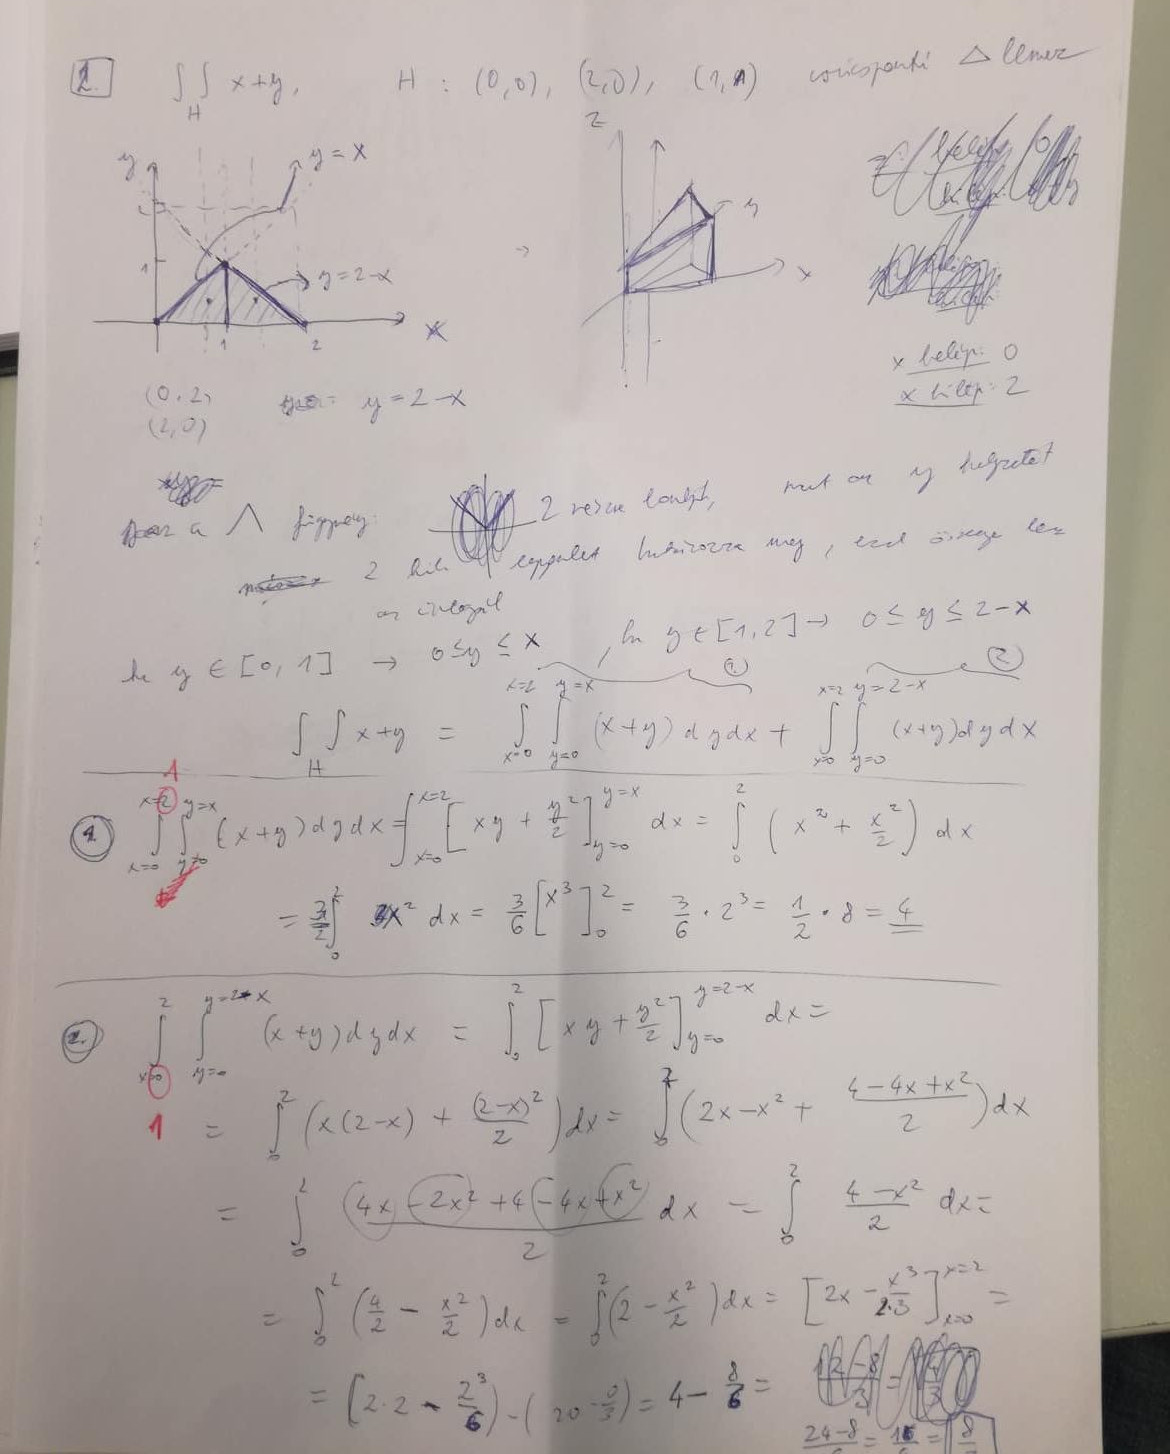 2. ∫∫_H x+y, H : (0,0), (2,0), (1,1) csúcspontú △ lemez
y y=x z
2
1 y=2-x y x
1 2 x
x belép: 0
x kilép: 2
(0,2) y=2-x
(2,0)
a ∧ függvény: 2 részre bomlik, mert az y helyzetét
2 kül. meg, ezek összege lesz
az integrál
ha y ∈ [0,1] → 0≤y≤x, ha y∈[1,2] → 0≤y≤2-x
∫∫_H x+y = ∫_{x=0}^{x=2} ∫_{y=0}^{y=x} (x+y) dydx + ∫_{x=0}^{x=2} ∫_{y=0}^{y=2-x} (x+y)dydx
1. 2.
1
1. ∫_{x=0}^{x=2} ∫_{y=0}^{y=x} (x+y)dydx = ∫_{x=0}^{x=2} [xy + y²/2]_{y=0}^{y=x} dx = ∫_0^2 (x² + x²/2) dx
= 3/2 ∫_0^2 x² dx = 3/6 [x³]_0^2 = 3/6 · 2³ = 1/2 · 8 = 4
2. ∫_{x=0}^{2} ∫_{y=0}^{y=2-x} (x+y)dydx = ∫_0^2 [xy + y²/2]_{y=0}^{y=2-x} dx =
1 = ∫_0^2 (x(2-x) + (2-x)²/2) dx = ∫_0^2 (2x-x² + (4-4x+x²)/2) dx
= ∫_0^2 (4x-2x²+4-4x+x²)/2 dx = ∫_0^2 (4-x²)/2 dx =
= ∫_0^2 (4/2 - x²/2) dx = ∫_0^2 (2 - x²/2) dx = [2x - x³/2·3]_{x=0}^{x=2} =
= (2·2 - 2³/6) - (2·0 - 0/3) = 4 - 8/6 =
24-8/6 = 16/6 = 8